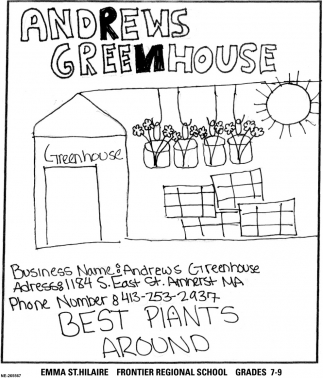 ANDREWS
GREENHOUSE
Greenhouse
Business Name: Andrews Greenhouse
Adress: 1184 S. East St. Amherst MA
Phone Nomber: 413-253-2937
BEST PLANTS
AROUND
NE-265567
EMMA ST.HILAIRE FRONTIER REGIONAL SCHOOL GRADES 7-9